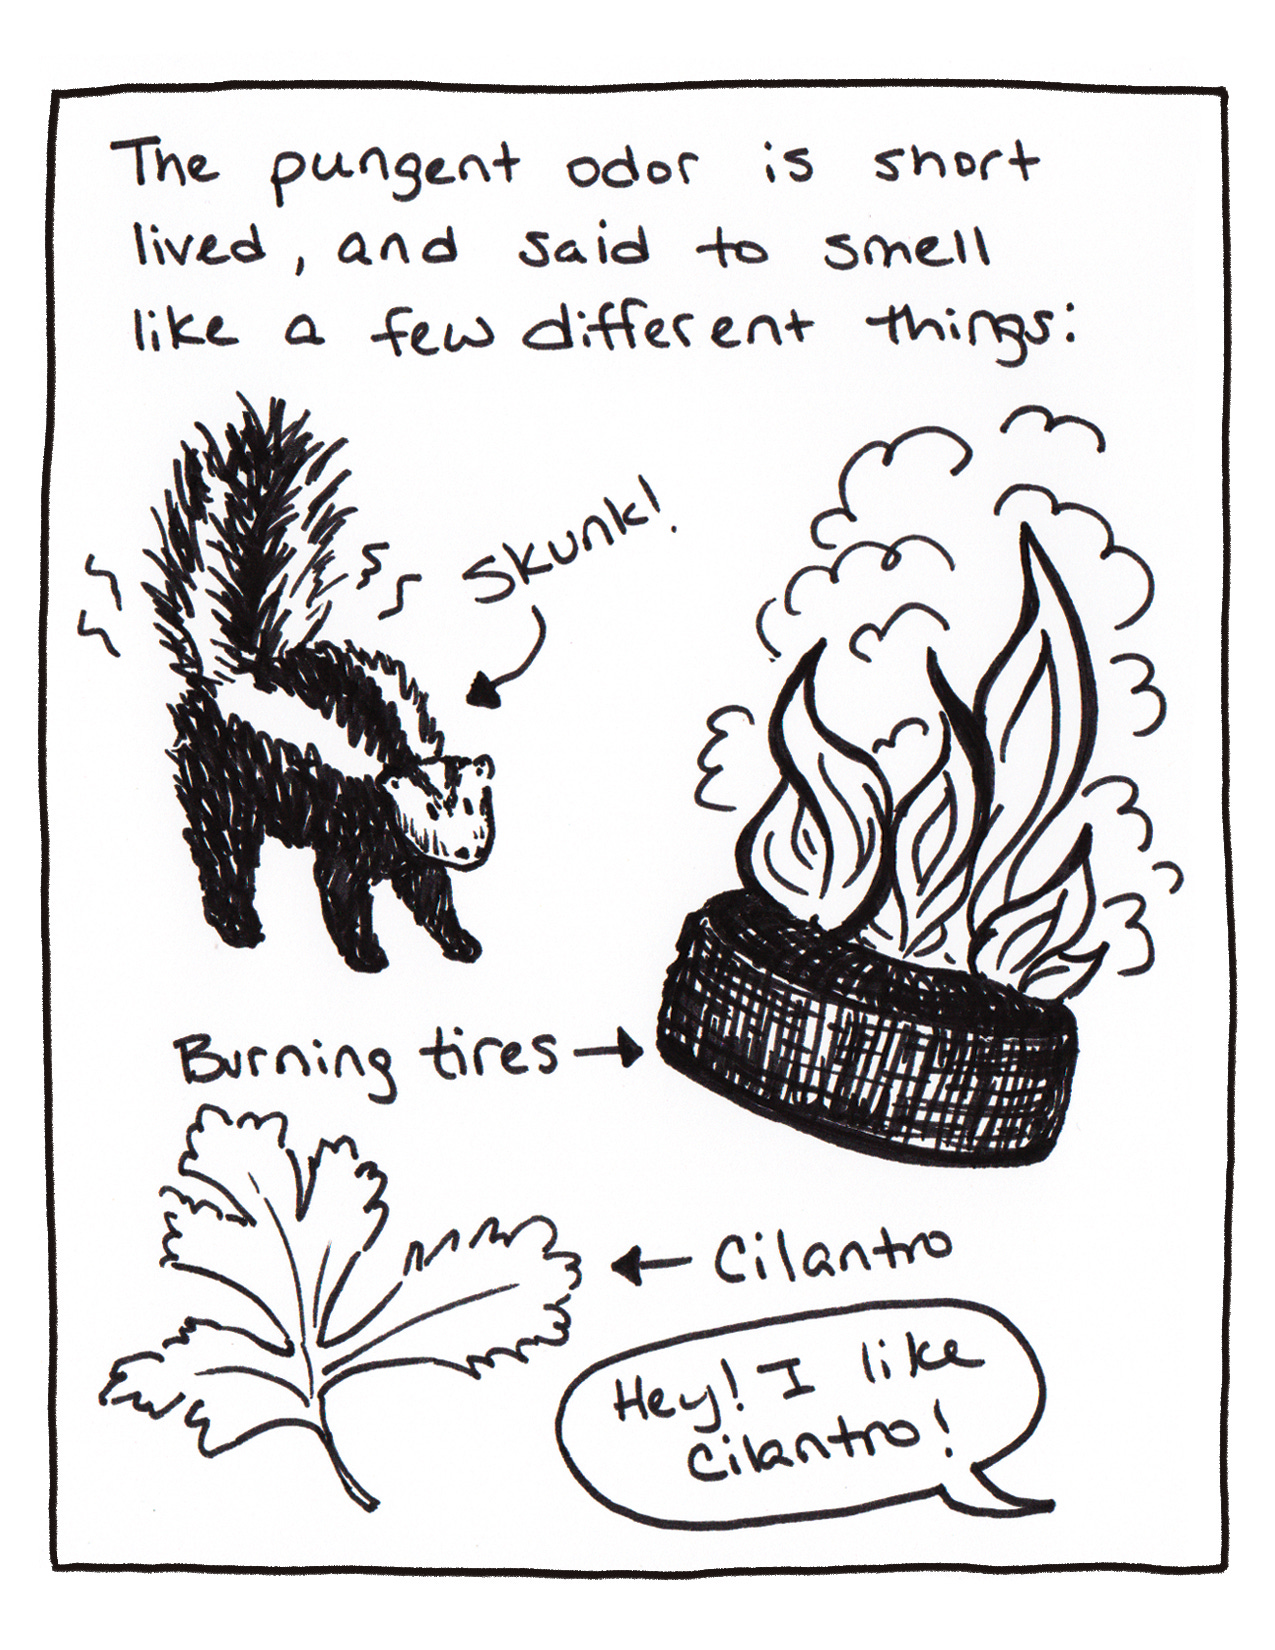 The pungent odor is short
lived, and said to smell
like a few different things:
Skunk!
Burning tires
Cilantro
Hey! I like
cilantro!